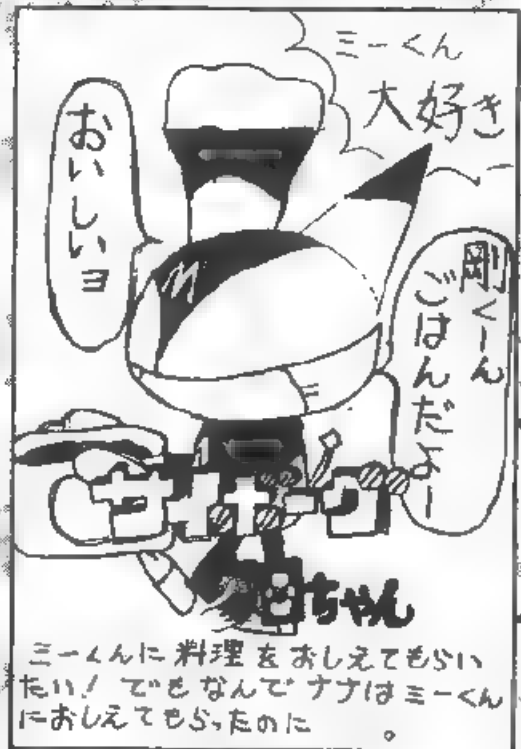 ミーくん
大好き
剛くーん
ごはんだよー
おいしいヨ
M
ちゃん
ミーくんに料理をおしえてもらい
たい！でもなんでナナはミーくん
におしえてもらったのに 。